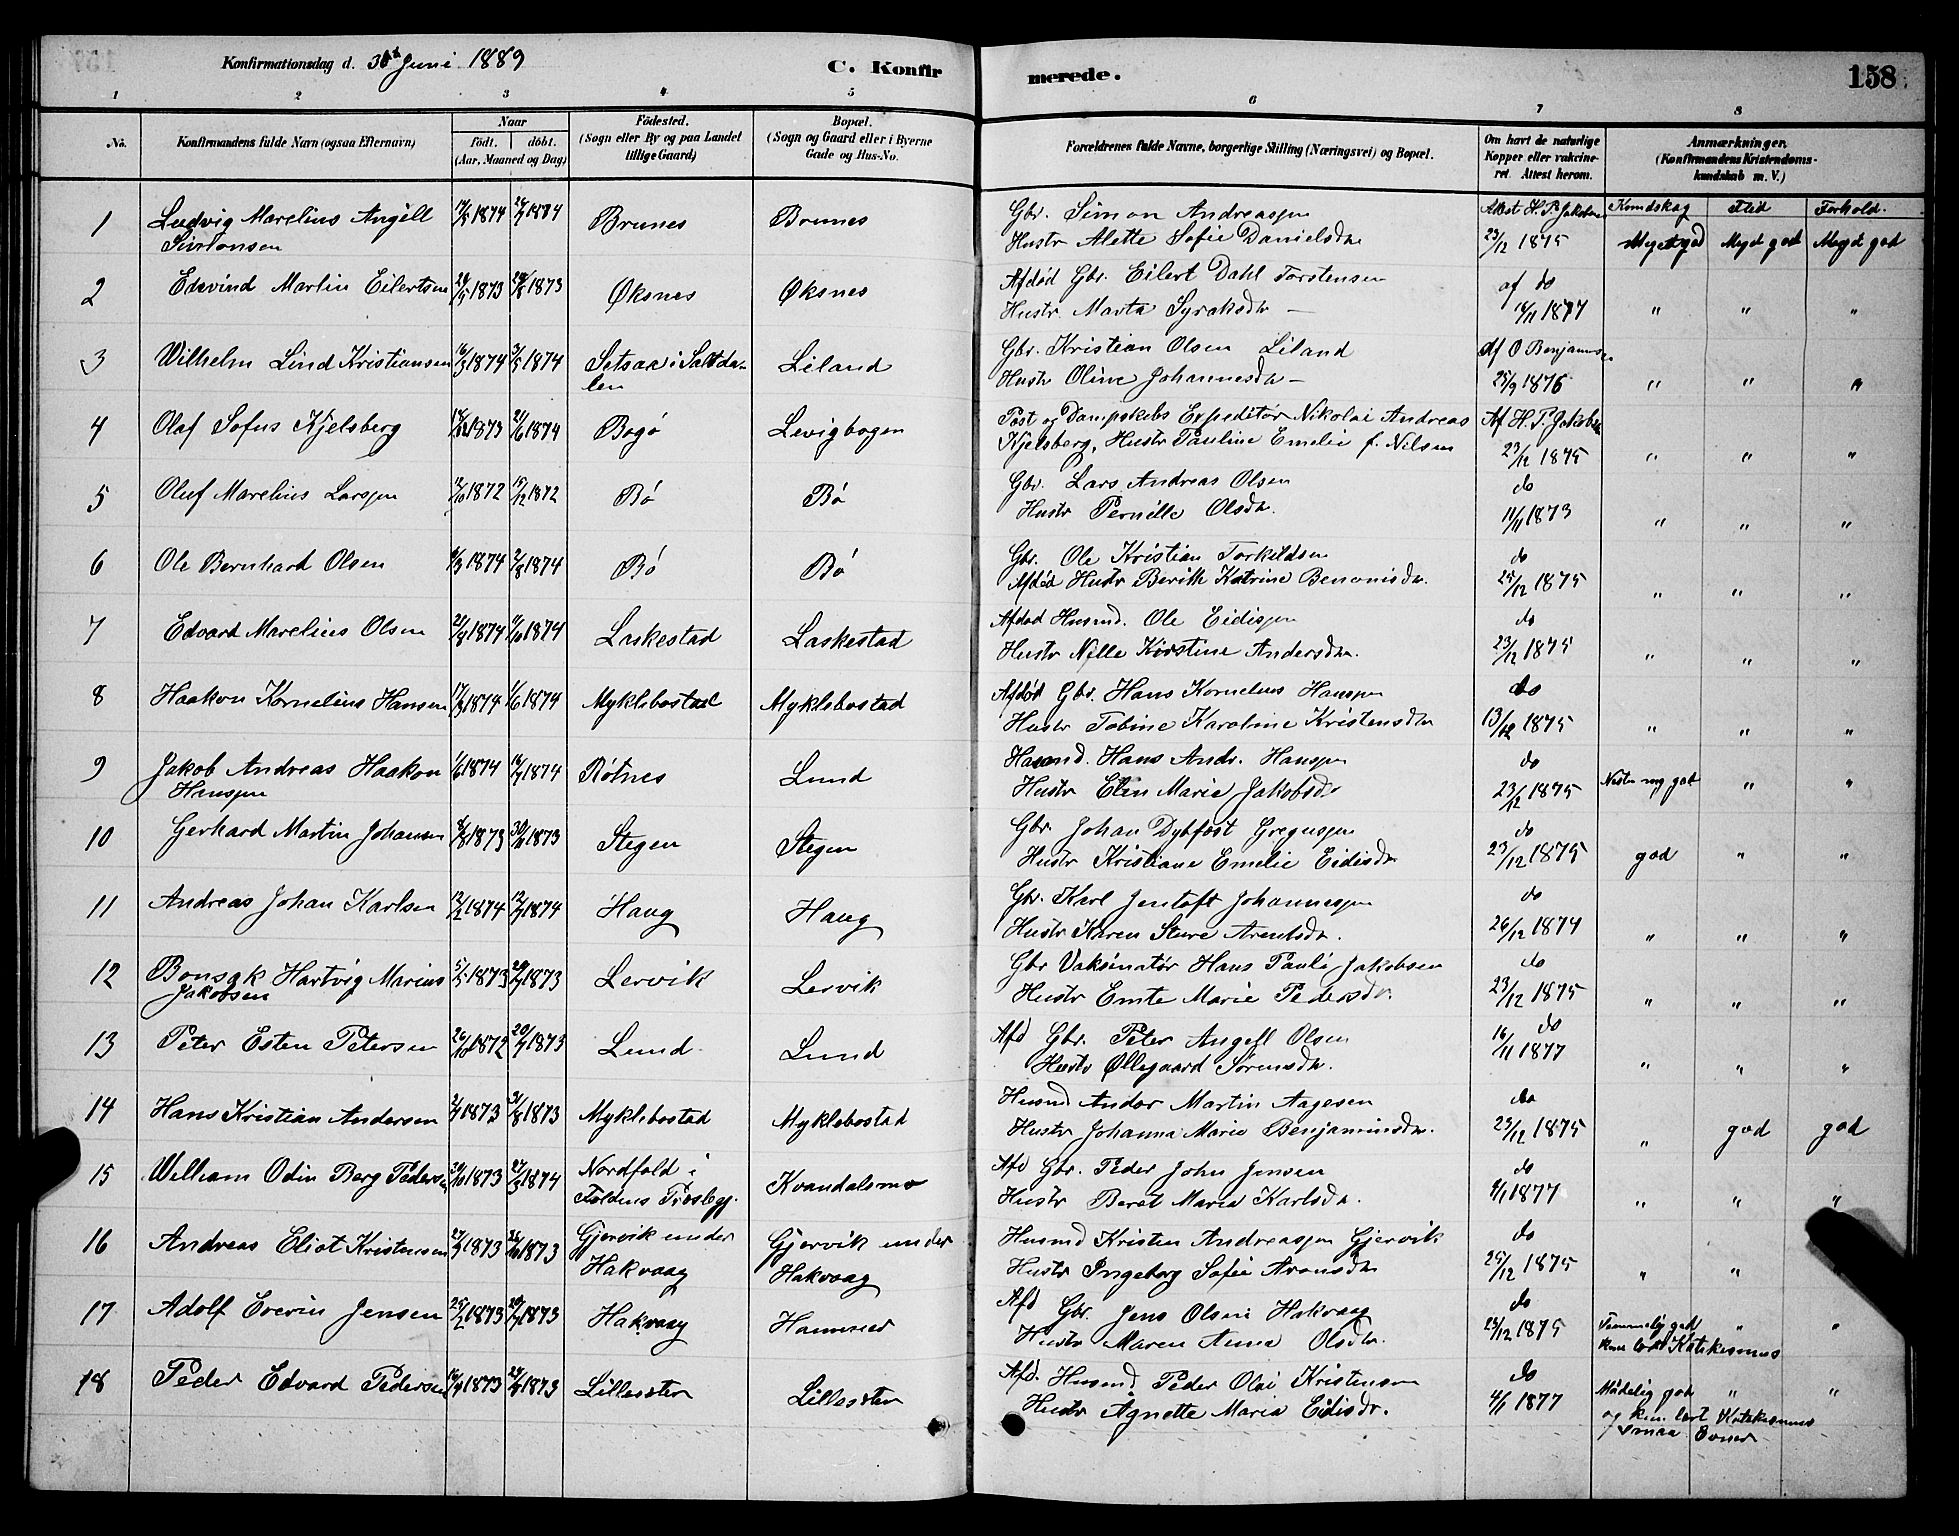 Konfirmationsdag d. 30t Juni 1889
C. Konfirmerede.
158
1 2 3 4 5 6 7 8
No.
Konfirmandens fulde Navn (ogsaa Efternavn)
Naar
født. døbt.
(Aar, Maaned og Dag)
Fødested.
(Sogn eller By og paa Landet
tillige Gaard)
Bopæl.
(Sogn og Gaard eller i Byerne
Gade og Hus-No.
Forældrenes fulde Navne, borgerlige Stilling (Næringsvei) og Bopæl.
Om havt de naturlige
Kopper eller vakcineret. Attest herom.
Anmærkninger.
(Konfirmandens Kristendomskundskab m. V.)
Kundskag Flid Forhold.
1 Ludvig Marelius Angell 1874 1874 Brunes Brunes Gbr. Simon Andreassen Attest H. P. Jakobsen
Simonsen Hustr Alette Sofie Danielsdr 23/12 1875 Meget god Meget god Meget god
2 Edevind Martin Eilertsen 1873 1873 Øksnes Øksnes Afdød Gbr. Eilert Dahl Torstensen af do
Hustr. Marta Syraksdr — 1877 " " "
3 Wilhelm Lind Kristiansen 16/3 1874 3/5 1874 Setsaa i Saltdalen Leland Gbr. Kristian Olsen Leland Af O Benjaminsen
Hustr Oline Johannesdr — 25/9 1876 " " "
4 Olaf Sofus Kjelsberg 1873 21/6 1874 Bogø Levigbogen Post og Dampskebs Expeditør Nikolai Andreas Af H. P. Jakobsen
Kjelsberg, Hustr Pauline Emelie f. Nilsen 23/12 1875 " " "
5 Oluf Marelius Larssen 1872 1872 Bø Bø Gbr. Lars Andreas Olsen do
Hustr Pernille Olsdr. 11/11 1873 " " "
6 Ole Bernhard Olsen 1874 2/8 1874 Bø Bø Gbr. Ole Kristian Torkildsen do
Afdød Hustr Berith Katrine Benonisdr. 25/12 1875 " " "
7 Edvard Marelius Olsen 1874 1874 Laskestad Laskestad Afdød Husmd. Ole Eidissen do
Hustr Nille Kirstine Andersdr. 23/12 1875 " " "
8 Haakon Kornelius Hansen 17/3 1874 1/6 1874 Myklebostad Myklebostad Afdød Gbr. Hans Kornelius Hanssen do
Hustr Tobine Karoline Kristensdr 13/12 1875 " " "
9 Jakob Andreas Haakon 1/6 1874 1874 Røtnes Lund Husmd. Hans Andr. Hanssen do
Hanssen Hustr Elen Marie Jakobsdr 23/12 1875 Nesten meg god " "
10 Gerhard Martin Johansen 1873 1873 Stegen Stegen Gbr. Johan Dybfest Gregussen do
Hustr Kristiane Emelie Eidisdr 23/12 1875 god " "
11 Andreas Johan Karlsen 12/2 1874 12/7 1874 Haug Haug Gbr. Karl Jentoft Johannessen do
Hustr Karen Sture Arentsdr. 26/12 1874 " " "
12 Bonsak Hartvig Marius 1873 1873 Lervik Lervik Gbr Vaksinatør Hans Pauli Jakobsen do
Jakobsen Hustr Emte Marie Pedersdr. 23/12 1875 " " "
13 Peter Esten Petersen 1872 1873 Lund Lund Afd Gbr. Peter Angell Olsen do
Hustr Øllegaard Sørensdr. 16/11 1877 " " "
14 Hans Kristian Andersen 1873 1873 Myklebostad Myklebostad Husmd Andor Martin Aagesen do
Hustr Johanna Marie Benjaminsdr. 23/12 1875 " god god
15 William Odin Berg Pedersen 1873 1874 Nordfold i Foldens Præstegj. Kvandalsmo Afd Gbr. Peder John Jensen do
Hustr Beret Maria Karlsdr. 1877 " " "
16 Andreas Eliot Kristensen 1873 1873 Gjervik under Hakvaag Gjervik under Hakvaag Husmd Kristen Andreassen Gjervik do
Hustr Ingeborg Sofie Aronsdr 25/12 1875 " "
17 Adolf Everin Jensen 25/2 1873 1873 Hakvaag Hamnes Afd Gbr. Jens Olsen Hakvaag do
Hustr Maren Anna Olsdr. 23/12 1875 Temmelig god " "
kun lært Katekesmus
18 Peder Edvard Pedersen 1873 1873 Lillesten Lillesten Afd. Husmd Peder Olai Kristensen do
Hustr Agnette Maria Eidisdr. 4/1 1877 Maadelig god " "
og kun lært Katekesmus
smaa Evner